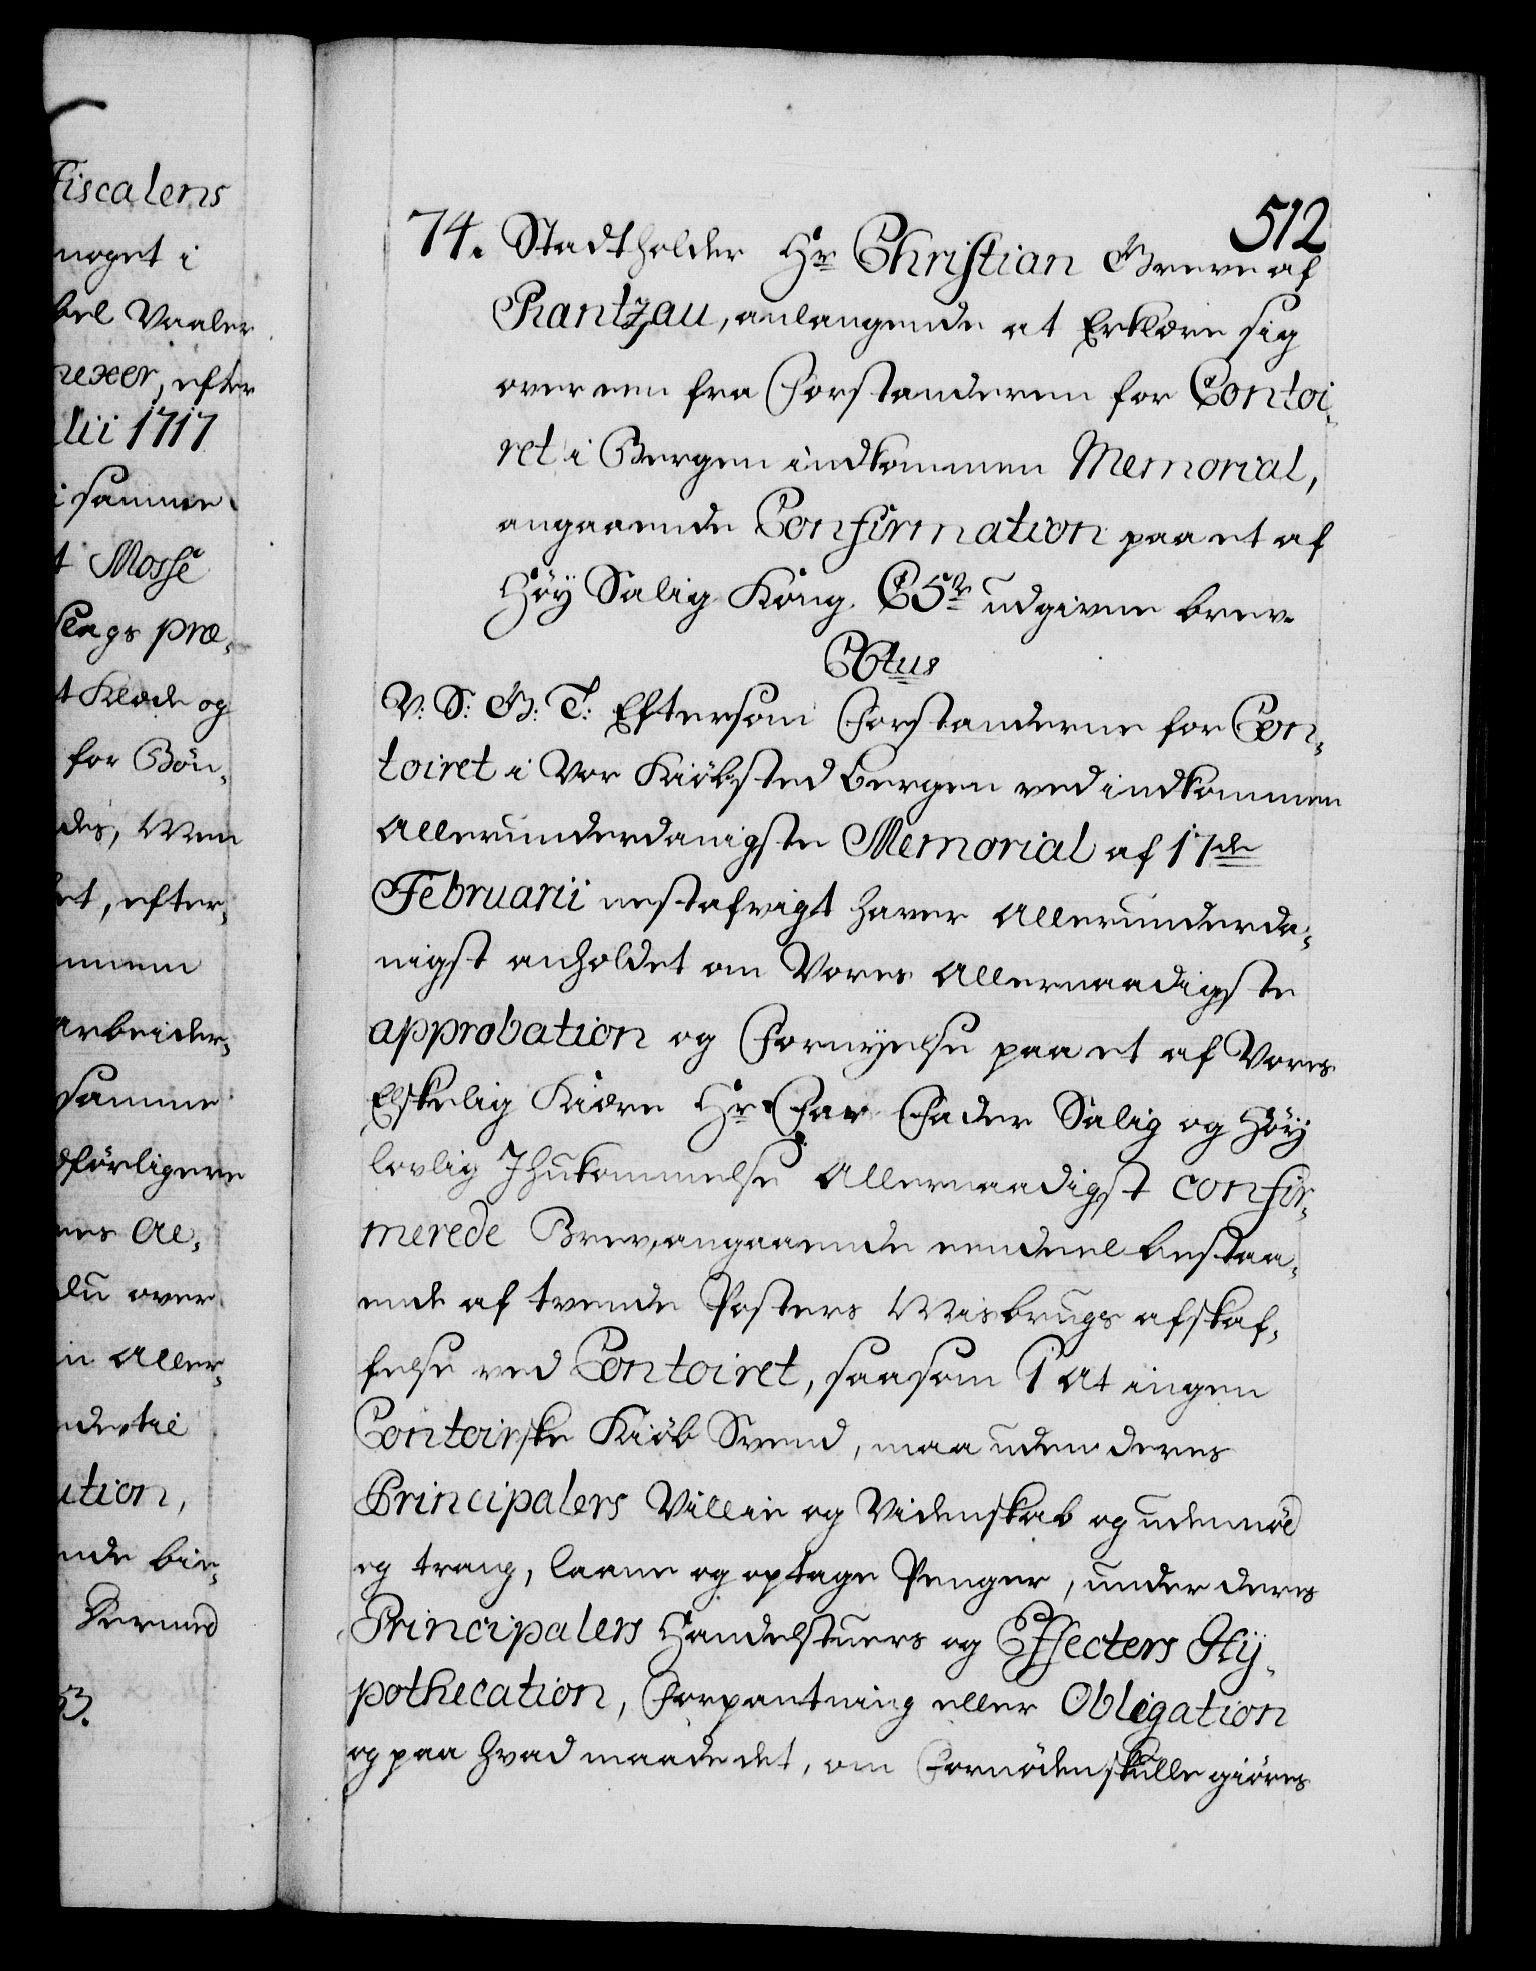 Fiscalens
noget i
bel Vaaler
nexer, efter
lii 1717
i samme
t Mosse
slags præ,
t Klæde og
for Bön,
des, Men
et, efter,
arbeider,
samme
dförligere
nes Al,
du over
in Aller,
ndertil
ution,
ende bie,
Dermed
53.
512
74. Stadtholder Hr Christian Greve af
Rantzau, anlangende at Erklære sig
over een fra Forstanderen for Contoi,
ret i Bergen indkommen Memorial,
angaaende Confirmation paa et af
Höy Salig Kong C5te udgiven brev.
CVItus
V: S: G: T: Eftersom Forstanderne for Con,
toiret i Vor Kiöbsted Bergen ved indkommen
Allerunderdanigste Memorial af 17de
Februarii nestafvigt haver Allerunderda,
nigst anholdet om Vores Allernaadigste
approbation og Fornyelse paa et af Vores
Elskelig Kiære Hr Far Fader Salig og Höy
lovlig Ihukommelse Allernaadigst confir,
merede Brev, angaaende eendeel bestaa,
ende af tvende Posters Misbrugs afskaf,
felse ved Contoiret, saasom 1 At ingen
Contoirske Kiöb Svend, maa uden deres
Principalers Villie og Videnskab og uden nöd
og trang, laane og optage Penger, under deres
Principalers Handelstuers og Effecters Hÿ,
pothecation, Forpantning eller Obligation
og paa hvad maade det, om Fornöden skulle giöres